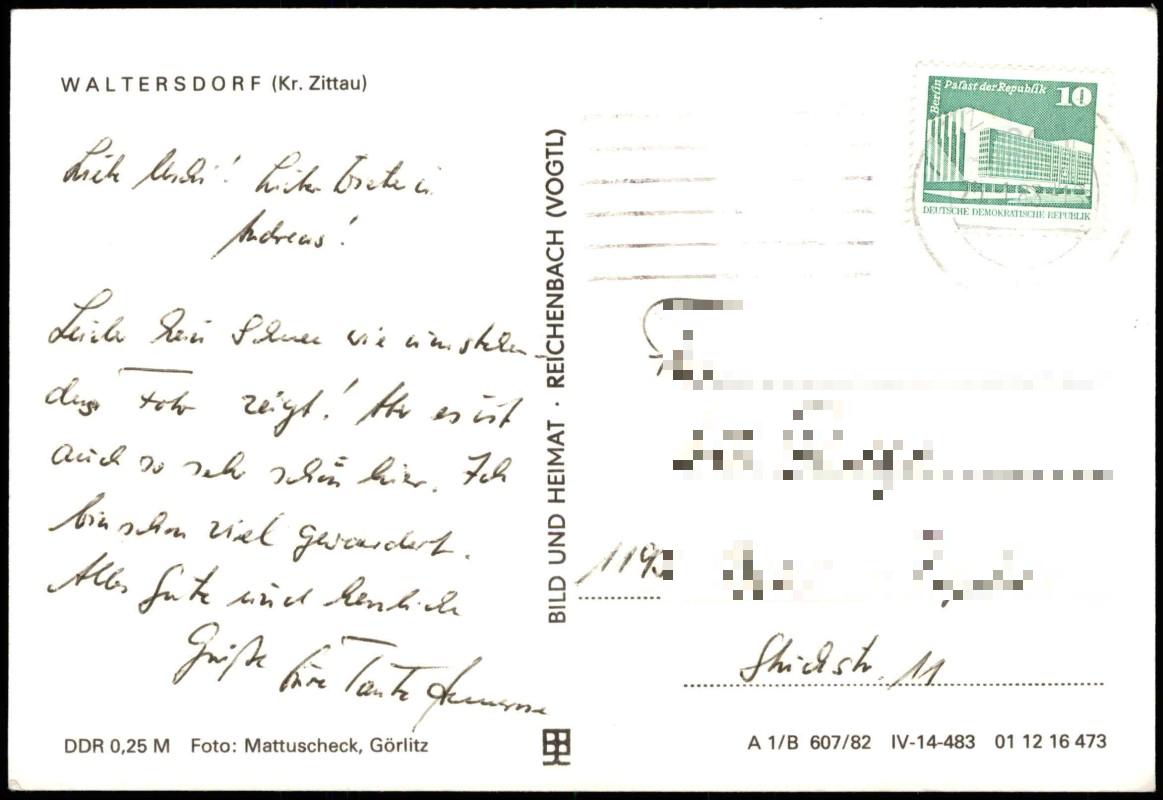 WALTERSDORF (Kr. Zittau)
Liebe Lieber
Andreas!
Leider kein Schnee wie umstehen-
des Foto zeigt! Aber es ist
auch so sehr schön hier. Ich
bin schon viel gewandert.
Alles Gute und herzliche
Grüße Eure Tante Annerose
DDR 0,25 M Foto: Mattuscheck, Görlitz
BILD UND HEIMAT · REICHENBACH (VOGTL)
Berlin Palast der Republik 10
DEUTSCHE DEMOKRATISCHE REPUBLIK
11
A 1/B 607/82 IV-14-483 01 12 16 473